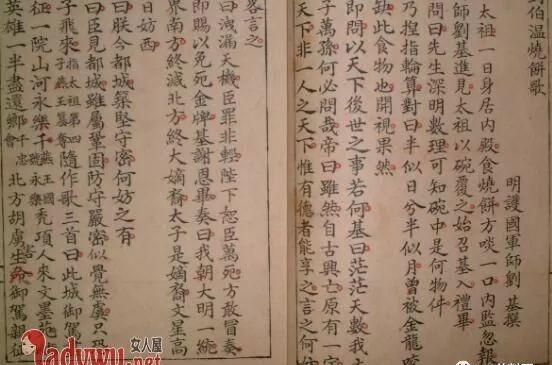 伯温燒餅歌
明護國軍師劉 基撰
太祖一日身居内殿食燒餅方啖一口内監忽報
師劉基進見太祖以碗覆之始召基入禮畢
問曰先生深明數理可知碗中是何物件
乃捏指輪算對曰半似日兮半似月曾被金龍
缺此食物也開視果然
即問以天下後世之事若何基曰茫茫天數我
子萬孫何必問哉帝曰雖然自古興亡原有一
天下非一人之天下惟有德者能享之言之何
畧言之
曰洩漏天機臣罪非輕陛下恕臣萬死方敢冒奏
即賜以免死金牌基謝恩畢奏曰我朝大明一統
界南方終滅北方終大嫡裔太子是嫡裔文星高
日妨西
曰朕今都城築堅守密何妨之有
曰臣見都城雖屬鞏固防守嚴密似覺無虞只恐
子飛來指太祖第四子燕王篡奪隨作歌三首曰此城御駕
征一院山河永樂平燕王國號永樂禿頂人來文墨
英雄一半盡還鄉 北方胡虜害生命御駕親
Ladywu.com女人屋